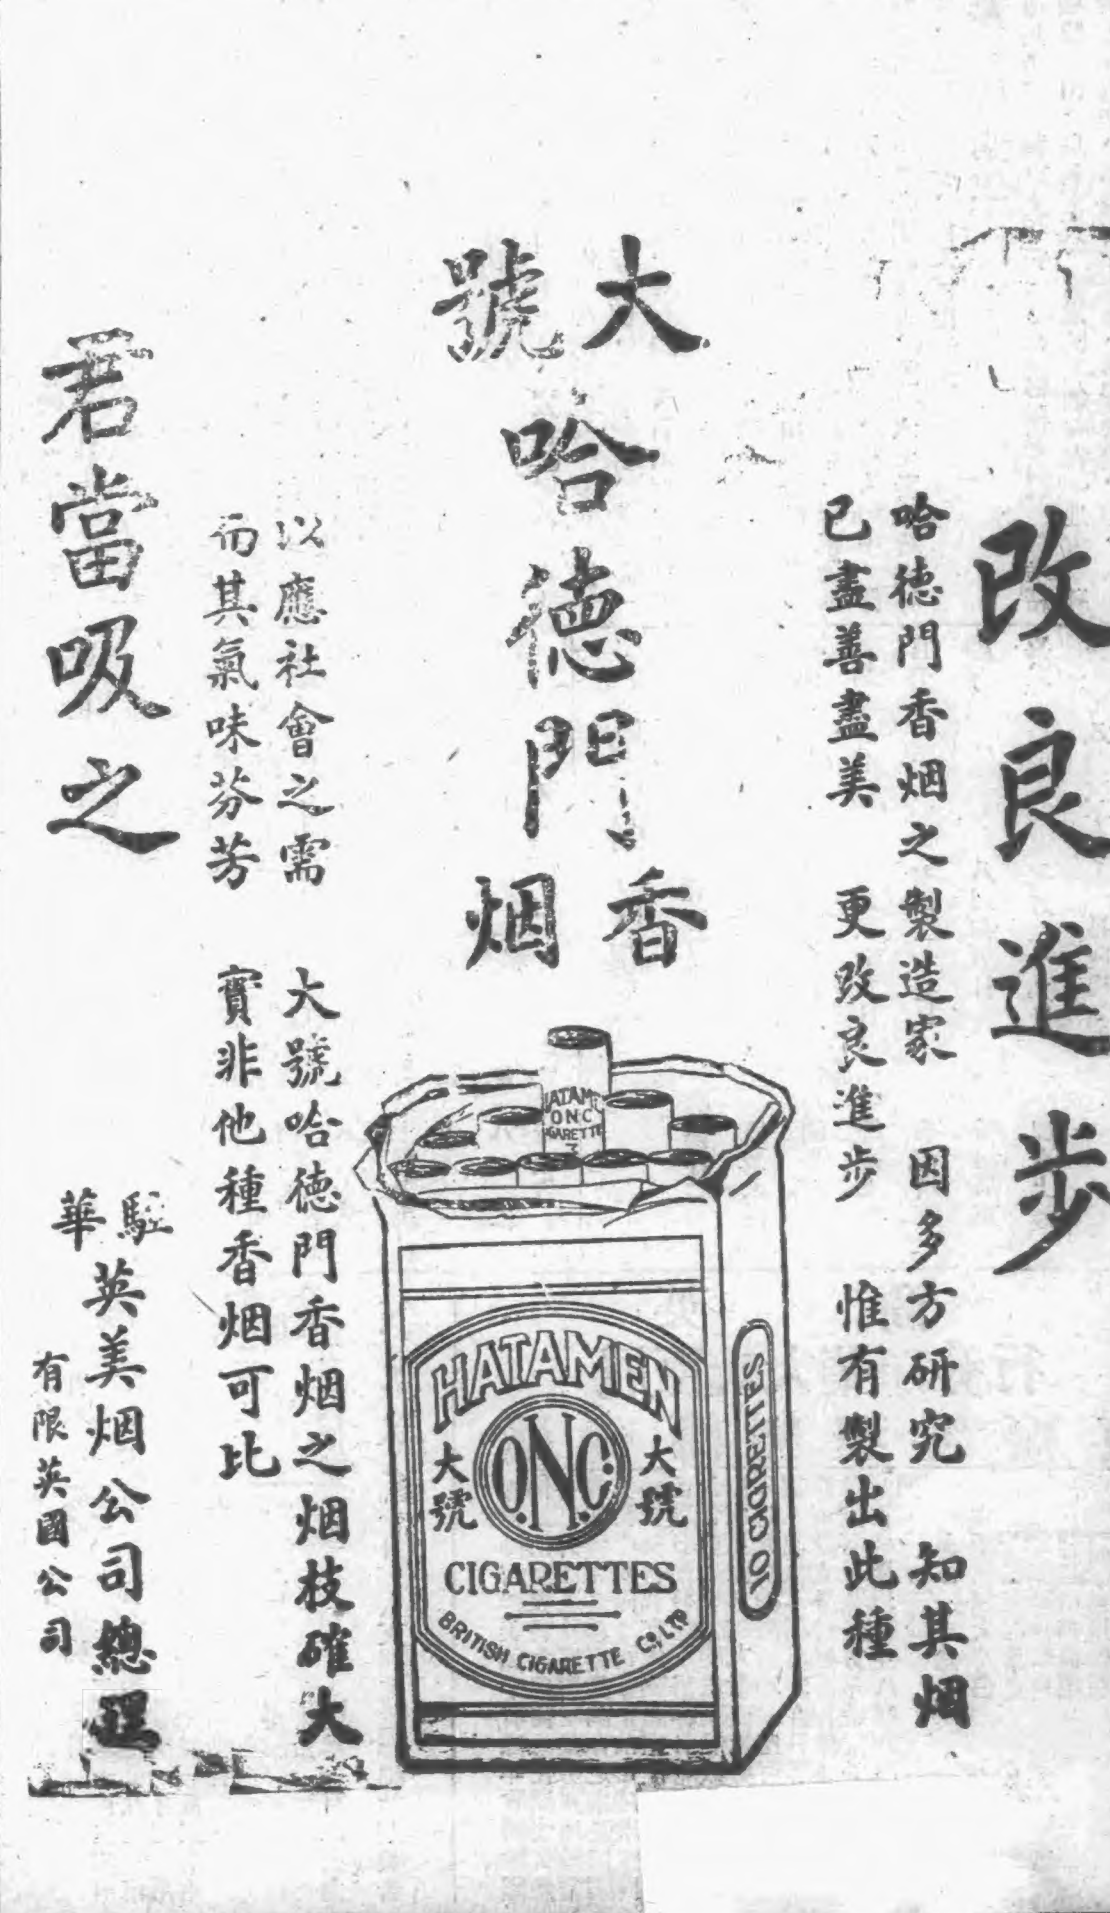 改良進步
哈德門香烟之製造家 因多方研究 知其烟
已盡善盡美 更改良進步 惟有製出此種
大號
哈德門
香烟
以應社會之需 大號哈德門香烟之烟枝確大
而其氣味芬芳 實非他種香烟可比
君當吸之
駐華
英美烟公司總理
有限英國公司
HATAMEN
O.N.C.
大號
大號
CIGARETTES
BRITISH CIGARETTE CO, LTD
10 CIGARETTES